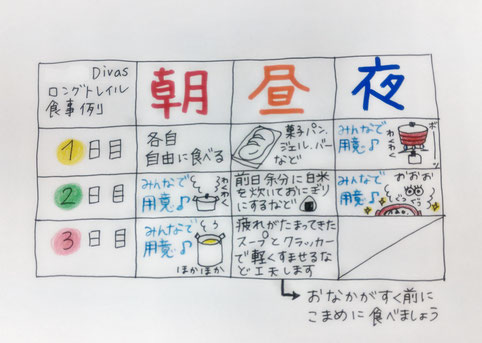 Divas
ロングトレイル
食事例
朝
昼
夜
1日目
各自
自由に食べる
菓子パン、
ジェル、バー
など
みんなで
用意♪
わくわく
2日目
みんなで
用意♪
わくわく
前日余分に白米
を炊いておにぎり
にするなど
みんなで
用意♪
3日目
みんなで
用意♪
ほかほか
疲れがたまってきた
スープとクラッカー
で軽くすませるな
ど工夫します
おなかがすく前に
こまめに食べましょう